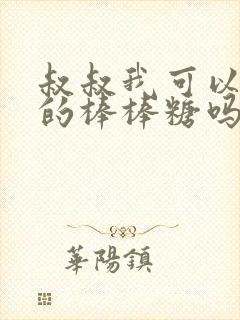 叔叔我可以
的棒棒糖吗
華陽鎮